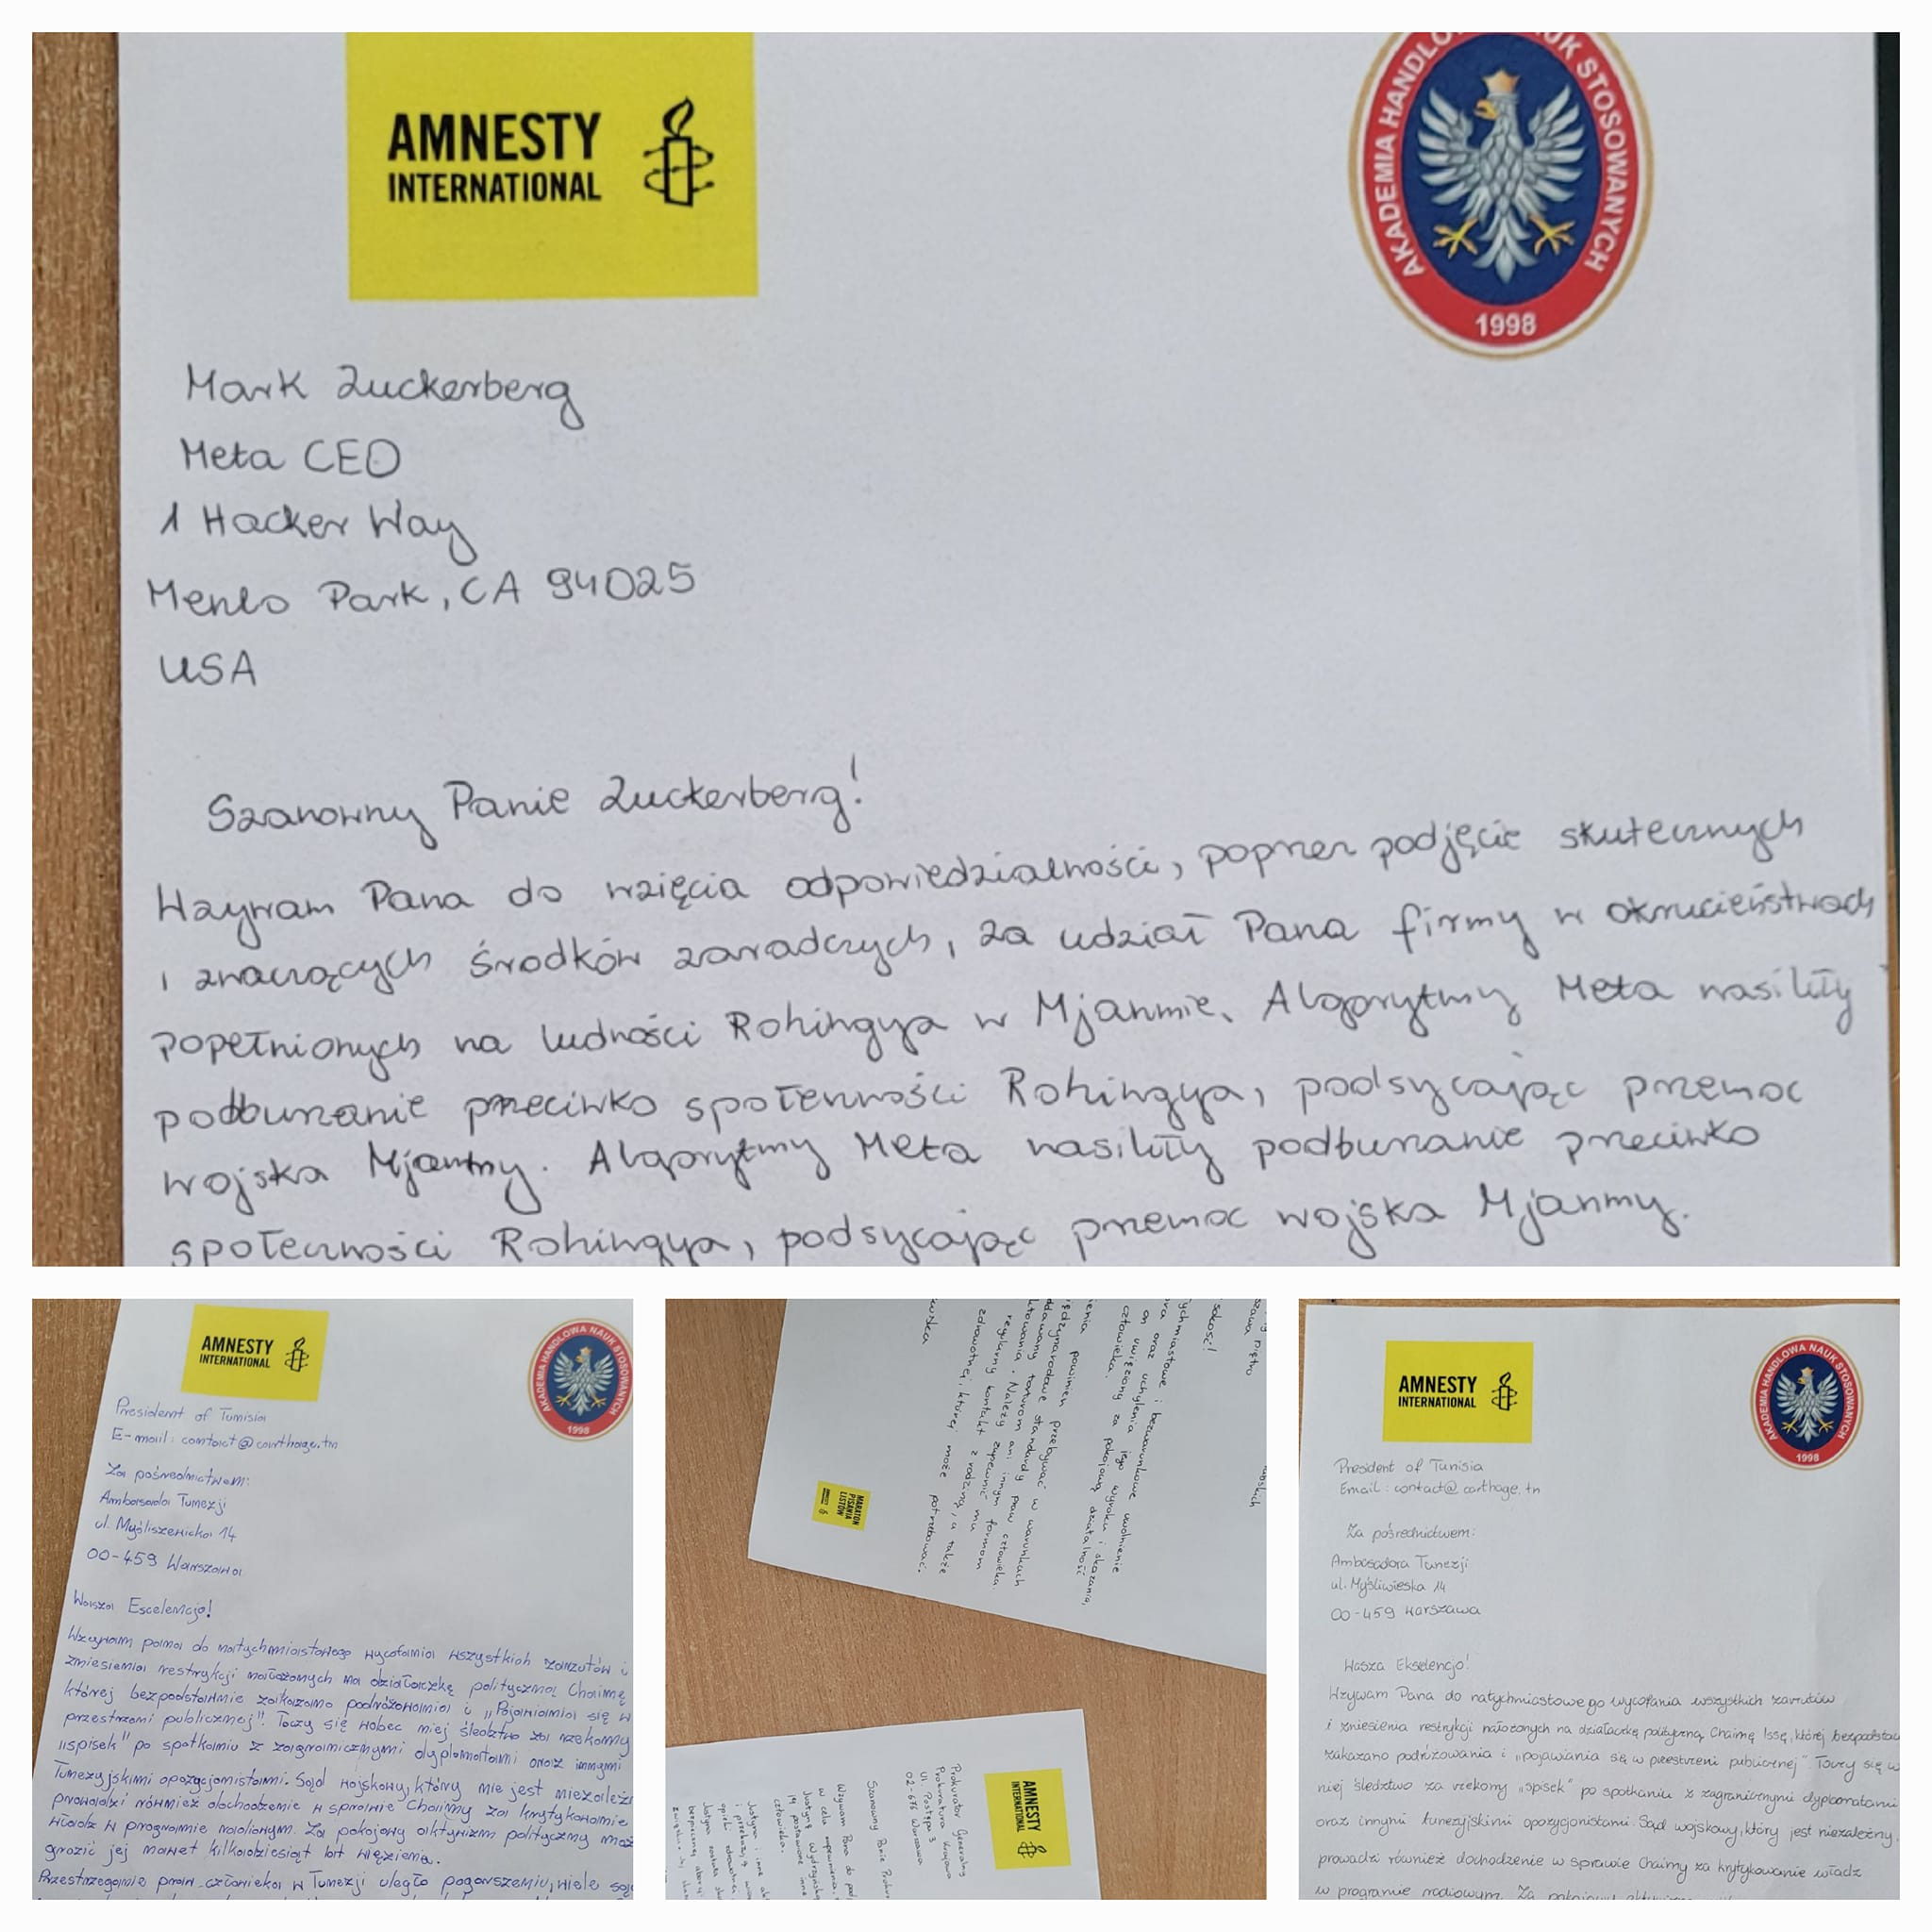 AMNESTY
INTERNATIONAL
AKADEMIA HANDLOWA NAUK STOSOWANYCH
1998
Mark Zuckerberg
Meta CEO
1 Hacker Way
Menlo Park, CA 94025
USA
Szanowny Panie Zuckerberg!
Wzywam Pana do wzięcia odpowiedzialności, poprzez podjęcie skutecznych
i znaczących środków zaradczych, za udział Pana firmy w okrucieństwach
popełnionych na ludności Rohingya w Mjanmie. Algorytmy Meta nasiliły
podburzanie przeciwko społeczności Rohingya, podsycając przemoc
wojska Mjanmy. Algorytmy Meta nasiliły podburzanie przeciwko
społeczności Rohingya, podsycając przemoc wojska Mjanmy.
AMNESTY
INTERNATIONAL
AKADEMIA HANDLOWA NAUK STOSOWANYCH
1998
President of Tunisia
E-mail: contact@carthage.tn
Za pośrednictwem:
Ambasada Tunezji
ul. Myśliwiecka 14
00-459 Warszawa
Wasza Escelencjo!
Wzywam pana do natychmiastowego wycofania wszystkich zarzutów i
zniesienia restrykcji nałożonych na działaczkę polityczną Chaimę
której bezpodstawnie zakazano podróżowania i „Pojawiania się w
przestrzeni publicznej". Toczy się wobec niej śledztwo za rzekomy
„spisek" po spotkaniu z zagranicznymi dyplomatami oraz innymi
Tunezyjskimi opozycjonistami. Sąd wojskowy, który nie jest
prowadzi również dochodzenie w sprawie Chaimy za krytykowanie
władz w programie radiowym. Za pokojowy aktywizm polityczny może
grozić jej nawet kilkadziesiąt lat więzienia.
Przestrzeganie praw człowieka w Tunezji uległo pogorszeniu, wiele
sokość!
natychmiastowe i bezwarunkowe uwolnienie
oraz uchylenia jego wyroku i skazania,
on uwięziony za pokojową działalność
człowieka.
powinien przebywać w warunkach
międzynarodowe standardy praw człowieka
poddawany torturom ani innym formom
traktowania. Należy zapewnić mu
regularny kontakt z rodziną, a także
zdrowotnej, której może potrzebować.
MARATON
PISANIA
LISTÓW
AMNESTY
INTERNATIONAL
Prokurator Generalny
Prokuratura Krajowa
Ul Postępu 3
02-676 Warszawa
Szanowny Panie
Wzywam Pana do
w celu zapewnienia
Justynę Wydrzyńską
człowieka.
Justyna i inne
AMNESTY
INTERNATIONAL
AKADEMIA HANDLOWA NAUK STOSOWANYCH
1998
President of Tunisia
Email: contact@carthage.tn
Za pośrednictwem:
Ambasadora Tunezji
ul. Myśliwieska 14
00-459 Warszawa
Wasza Ekselencjo!
Wzywam Pana do natychmiastowego wycofania wszystkich zarzutów
i zniesienia restrykcji nałożonych na działaczkę polityczną Chaimę Issę, której
zakazano podróżowania i „pojawiania się w przestrzeni publicznej" Toczy się w
niej śledztwo za rzekomy „spisek" po spotkaniu z zagranicznymi dyplomatami
oraz innymi tunezyjskimi opozycjonistami. Sąd wojskowy, który jest niezależny,
prowadzi również dochodzenie w sprawie Chaimy za krytykowanie władz
w programie radiowym. Za pokojowy